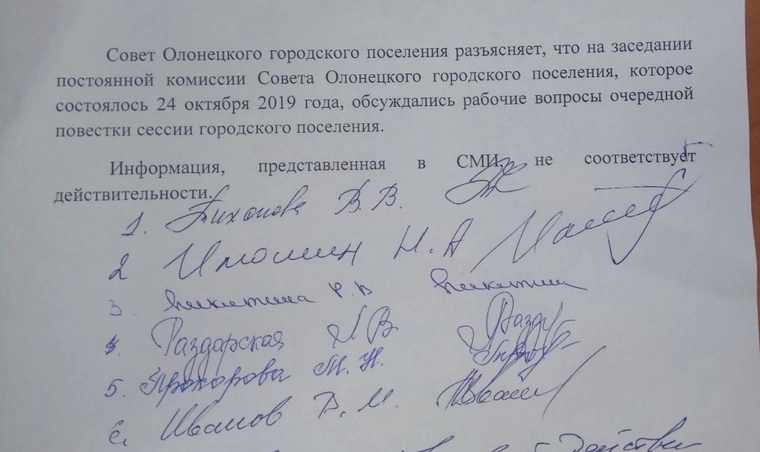 Совет Олонецкого городского поселения разъясняет, что на заседании
постоянной комиссии Совета Олонецкого городского поселения, которое
состоялось 24 октября 2019 года, обсуждались рабочие вопросы очередной
повестки сессии городского поселения.
Информация, представленная в СМИ, не соответствует
действительности.
1. Тихонова В.В.
2 И.А
3. Никитина
4. Раздарская Л В
5. Прохорова М. Н.
6. Иванов Д. М.